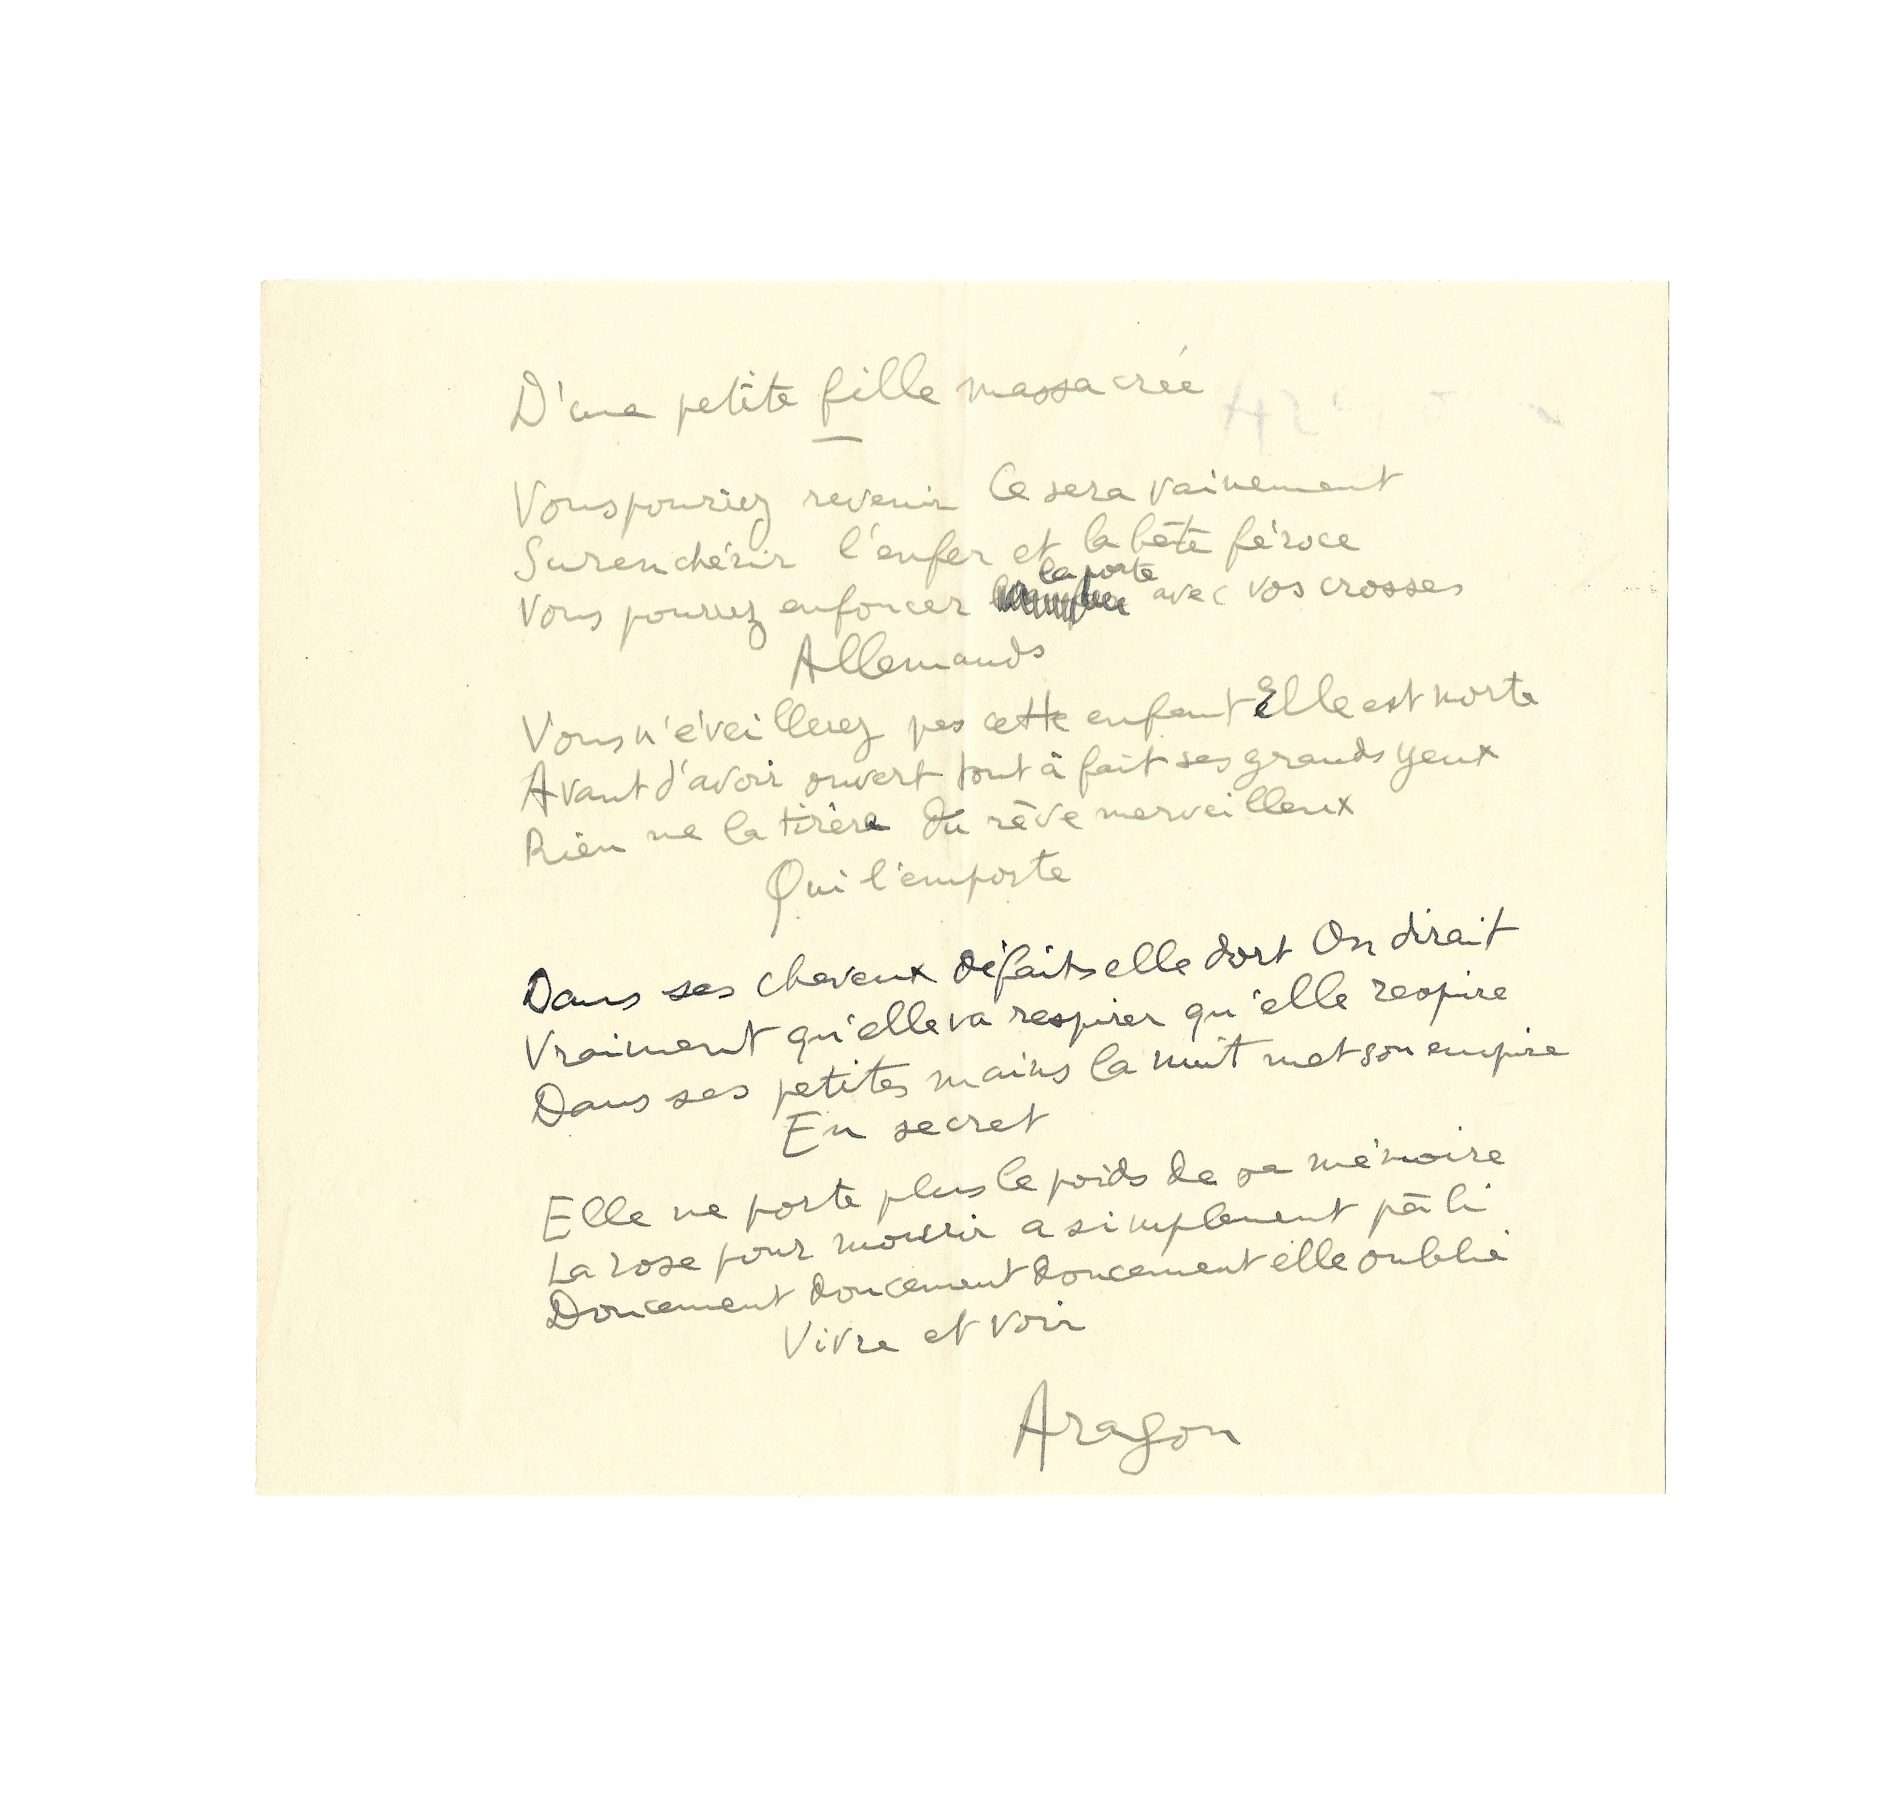 D'une petite fille massacrée
Vous pourrez revenir Ce sera vainement
Surenchérir l'enfer et la bête féroce
la porte
Vous pourrez enfoncer avec vos crosses
Allemands
Vous n'éveillerez pas cette enfant Elle est morte
Avant d'avoir ouvert tout à fait ses grands yeux
Rien ne la tirera du rêve merveilleux
Qui l'emporte
Dans ses cheveux défaits elle dort On dirait
Vraiment qu'elle va respirer qu'elle respire
Dans ses petites mains la nuit met son empire
En secret
Elle ne porte plus le poids de sa mémoire
La rose pour mourir a simplement pâli
Doucement doucement doucement elle oublie
Vivre et voir
Aragon